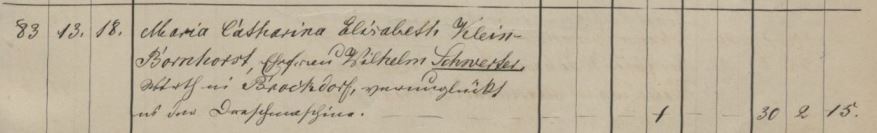 83 13. 18. Maria Catharina Elisabeth Klein-
Bornhorst, Ehefrau Wilhelm Schwerter,
Wirth in Brockdorf, verunglückt
in der Dreschmaschine. 1 30 2 15.